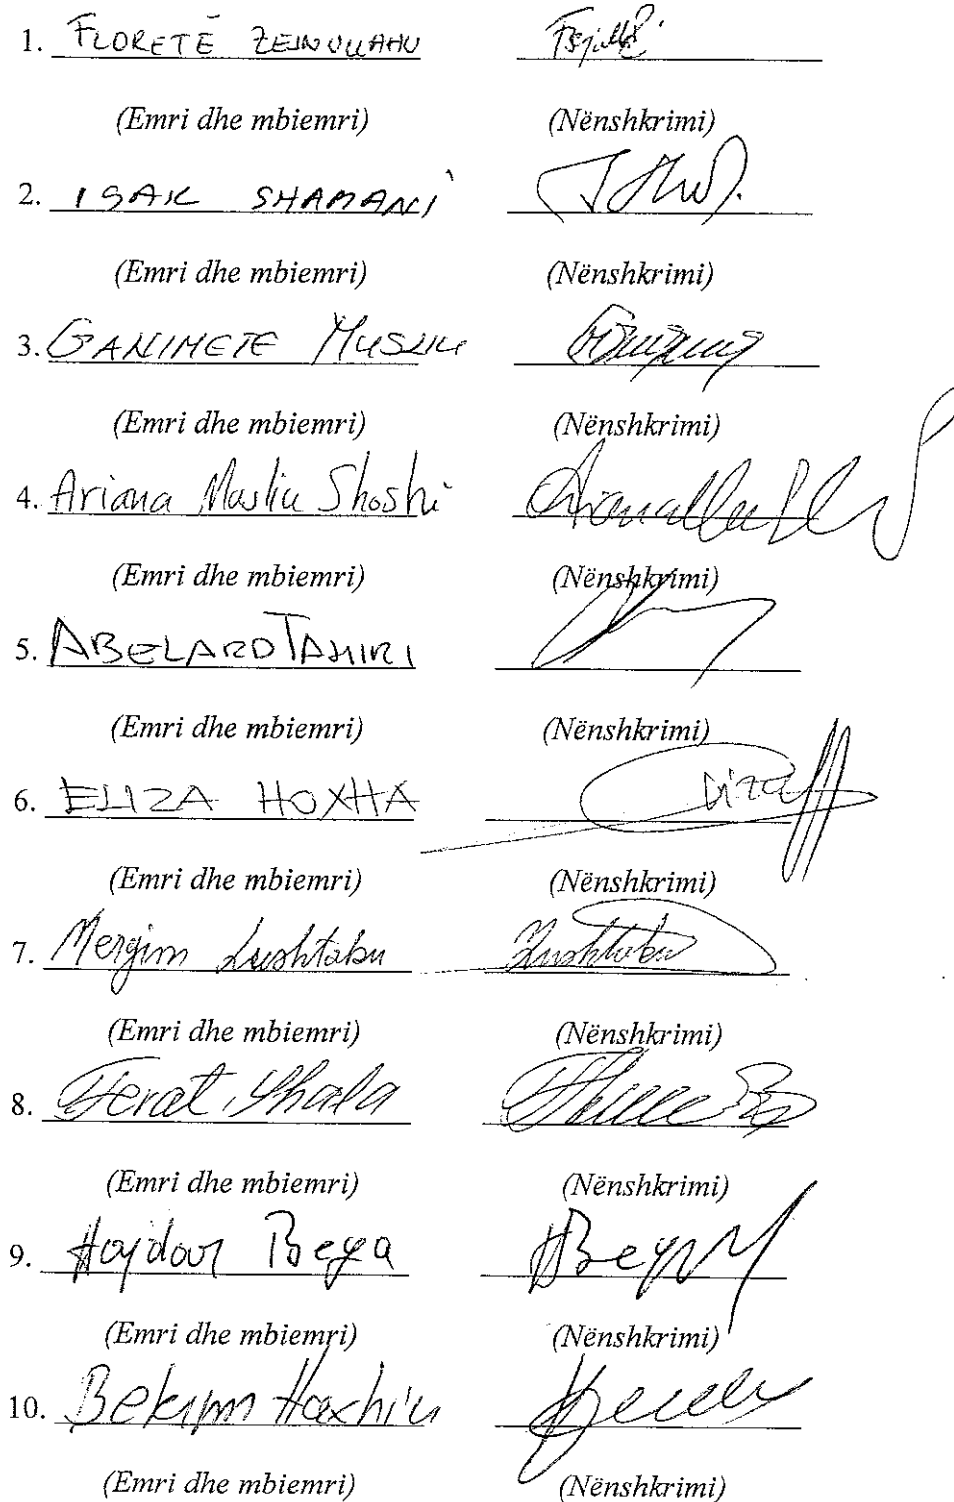 1. FLORETË ZEJNULLAHU
(Emri dhe mbiemri) (Nënshkrimi)
2. ISAK SHABANI
(Emri dhe mbiemri) (Nënshkrimi)
3. GANIMETE MUSLIU
(Emri dhe mbiemri) (Nënshkrimi)
4. Ariana Musliu Shoshi
(Emri dhe mbiemri) (Nënshkrimi)
5. ABELARD TAHIRI
(Emri dhe mbiemri) (Nënshkrimi)
6. ELIZA HOXHA Eliza
(Emri dhe mbiemri) (Nënshkrimi)
7. Mergim Lushtaku Lushtaku
(Emri dhe mbiemri) (Nënshkrimi)
8. Ferat Shala
(Emri dhe mbiemri) (Nënshkrimi)
9. Hajdar Beqa HBeqa
(Emri dhe mbiemri) (Nënshkrimi)
10. Bekim Haxhiu
(Emri dhe mbiemri) (Nënshkrimi)